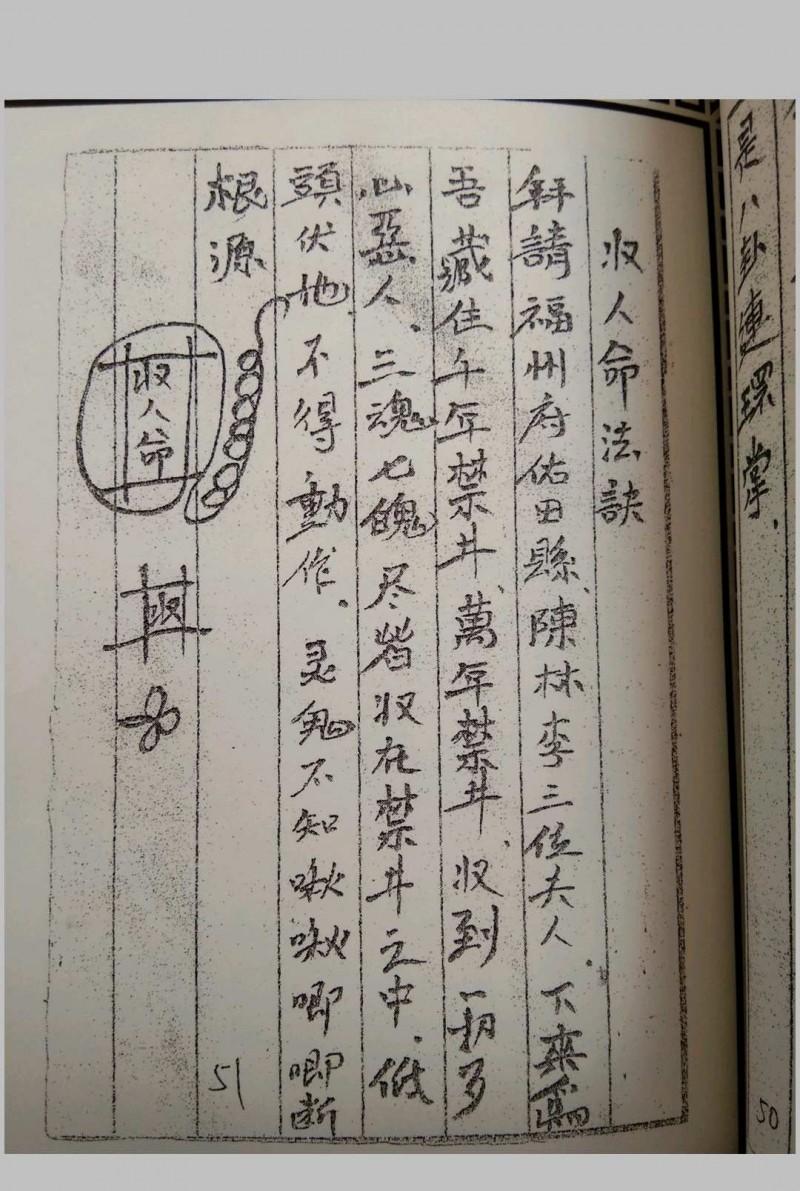 收人命法訣
拜請福州府佑田縣、陳林李三位夫人。下來為
吾藏住千年禁井、萬年禁井、收到一切歹
心惡人、三魂七魄尽皆收在禁井之中。低
頭伏地不得動作。灵鬼不知啾啾唧唧断
根源
收人命
收
51
是八卦連環掌、
50